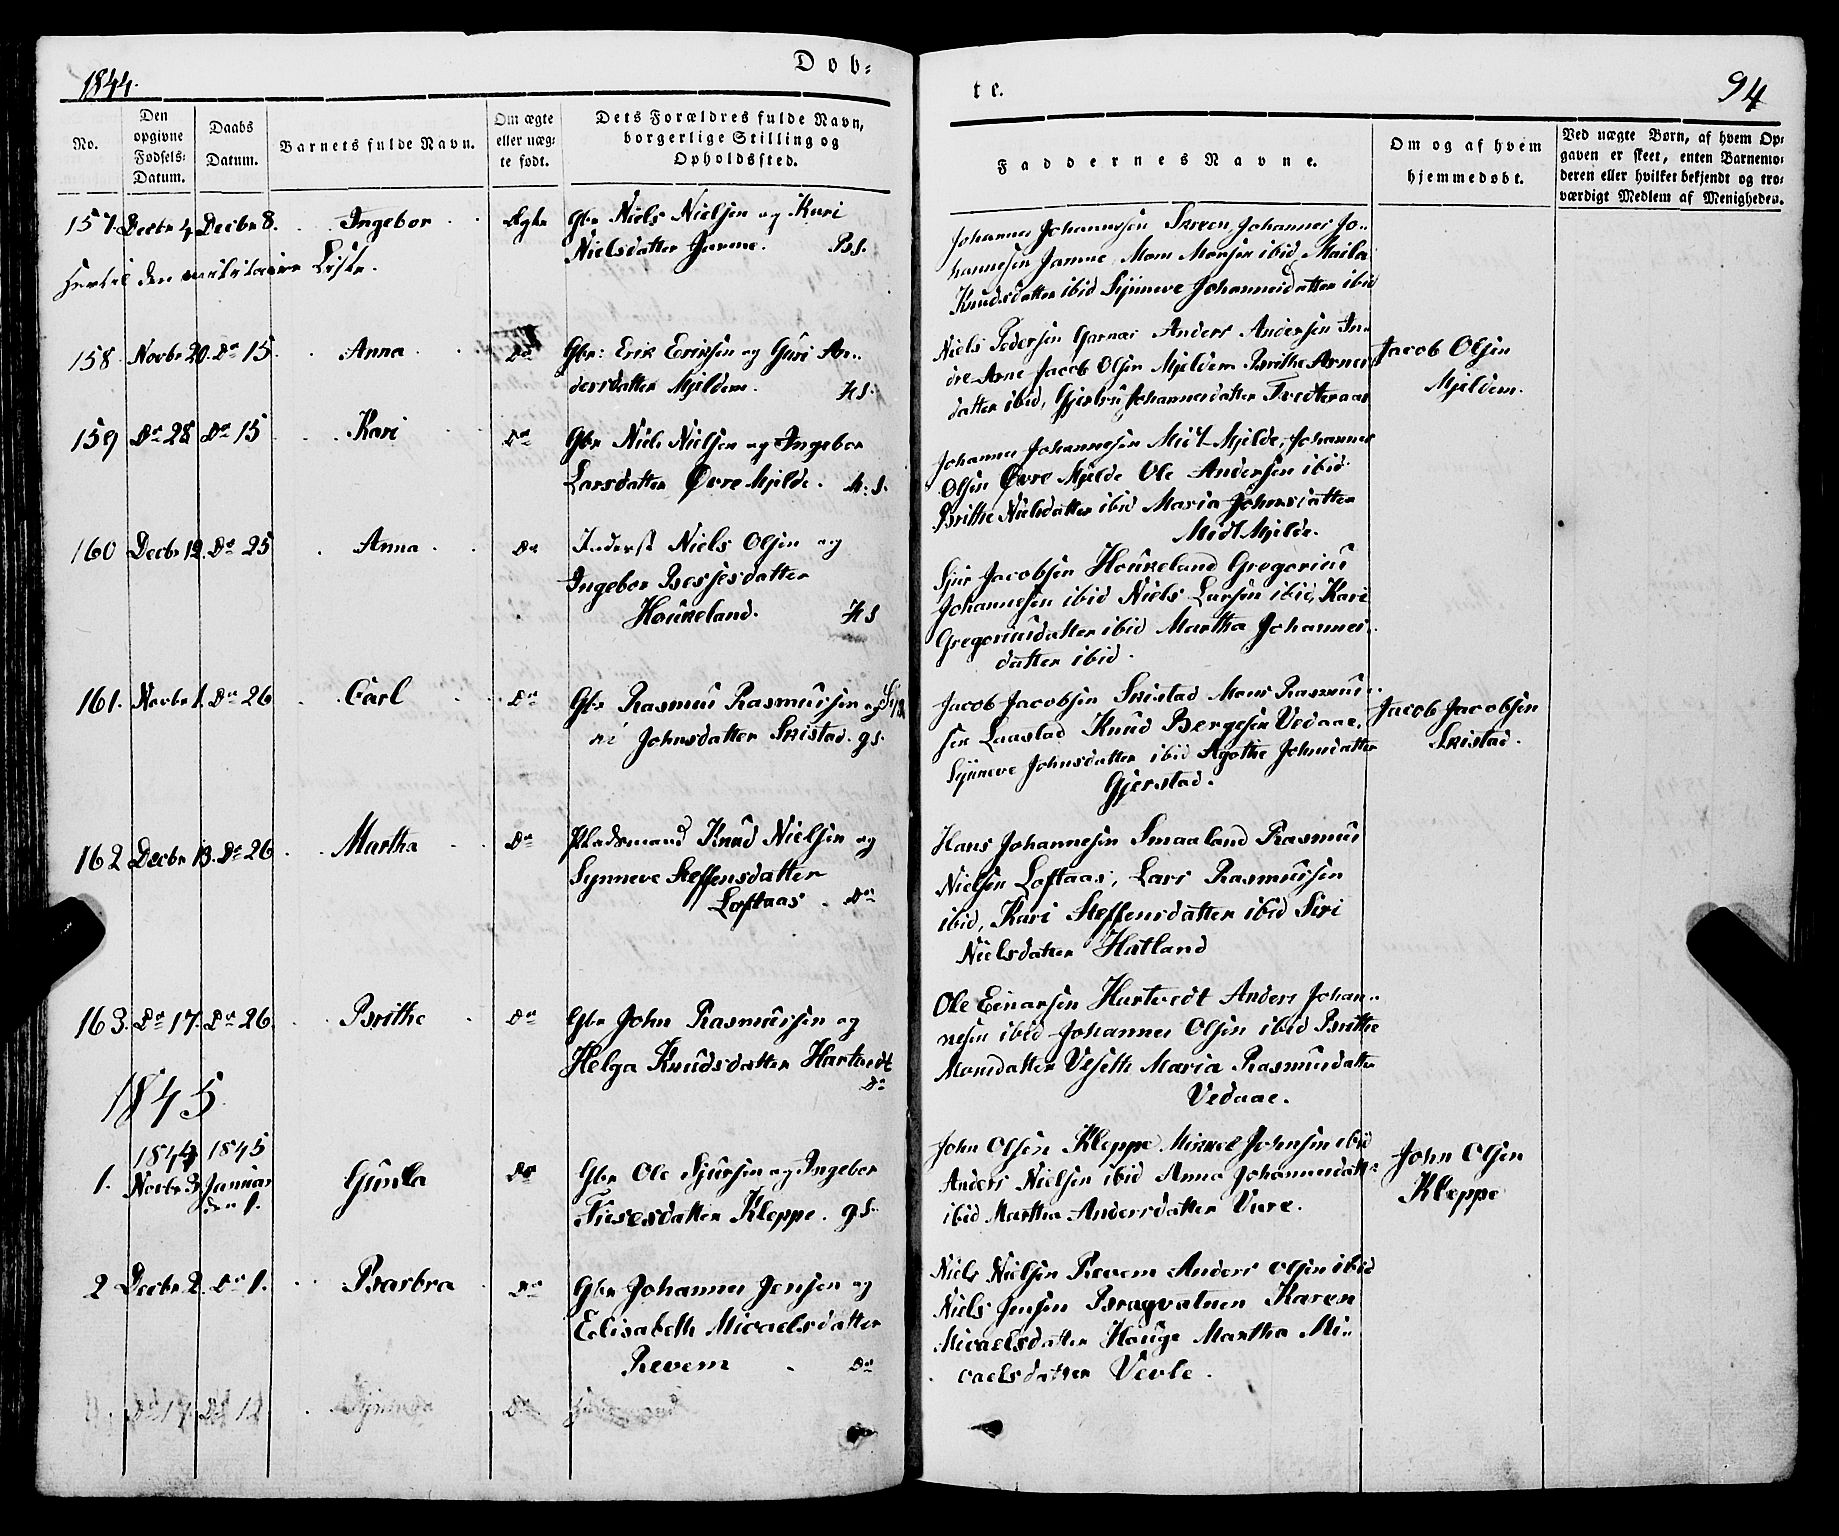 1844.
Døb-
No.
Den opgivne Fødsels-Datum.
Daabs Datum.
Barnets fulde Navn.
Om ægte eller uæg-te født.
Dets Forældres fulde Navn, borgerlige Stilling og Opholdssted.
157. Decbr 4. Decbr 8. Ingebor Ægte Gbr Niels Nielsen og Kari
Nielsdatter Jamne. B.S.
Hertil den militaire Liste.
158. Novbr 20. Do 15. Anna Do Gbr: Erik Eriksen og Guri An-
dersdatter Mjeldem. H S.
159 Do 28 Do 15 Kari Do Gbr Niels Nielsen og Ingebor
Larsdatter Øvre Mjelde. H: S.
160 Decbr 12. Do 25 Anna Do Inderst Niels Olsen og
Ingebor Bessesdatter
Houkeland. H S
161. Novbr 1. Do 26 Carl Do Gbr Rasmus Rasmussen og Sy
ni Johnsdatter Skistad. g S.
162 Decbr 13. Do 26 Martha Do Pladsmand Knud Nielsen og
Synneve Steffensdatter
Loftaas Do
163. Do 17. Do 26. Brithe Do Gbr John Rasmussen og
Helga Knudsdatter Hartvedt
Do
1845
1844 1845
1. Novbr 3 Januar Gunla Do Gbr Ole Sjursen og Ingebor
den 1. datter Kleppe. g S.
2 Decbr 2. Do 1. Barbra Do Gbr Johannes Jensen og
Elisabeth Micaelsdatter
Revem Do
Do 12 Synneva Do
te.
94
Faddernes Navne.
Om og af hvem hjemmedøbt.
Ved uægte Børn, af hvem Op-
gaven er skeet, enten Barnemo-
deren eller hvilket bekjendt og tro-
værdigt Medlem af Menigheden.
Johannes Johannesen Skreen, Johannes Jo-
hannesen Jamne, Mons Monsen ibid, Maila
Knudsdatter ibid Synneve Johannesdatter ibid
Niels Pedersen Garnæs Anders Andersen In-
dre Arne Jacob Olsen Mjeldem Brithe Arnes
datter ibid, Gjertru Johannesdatter Tvedteraas
Jacob Olsen
Mjeldem.
Johannes Johannesen Midt Mjelde, Johannes
Olsen Øvre Mjelde Ole Andersen ibid
Brithe Nielsdatter ibid Maria Johnsdatter
Midt Mjelde.
Sjur Jacobsen Houkeland Gregorius
Johannesen ibid Niels Larsen ibid, Kari
Gregoriusdatter ibid Martha Johannes-
datter ibid.
Jacob Jacobsen Skistad Mons Rasmus-
sen Laastad Knud Bergesen Vedaae,
Synneve Johnsdatter ibid Agathe Johnsdatter
Gjerstad.
Jacob Jacobsen
Skistad.
Hans Johannesen Smaaland Rasmus
Nielsen Loftaas, Lars Rasmussen
ibid, Kari Steffensdatter ibid Siri
Nielsdatter Hatland
Ole Einarsen Hartvedt Anders Johan-
nesen ibid Johannes Olsen ibid Brithe
Monsdatter Veseth Maria Rasmusdatter
Vedaae.
John Olsen Kleppe Mikkel Johnsen ibid
Anders Nielsen ibid Anna Johannesdatter
ibid Martha Andersdatter Viere.
John Olsen
Kleppe
Niels Nielsen Revem Anders Olsen ibid
Niels Jensen Bragvatnen Karen
Micaelsdatter Houge Martha Mi-
caelsdatter Vevle.